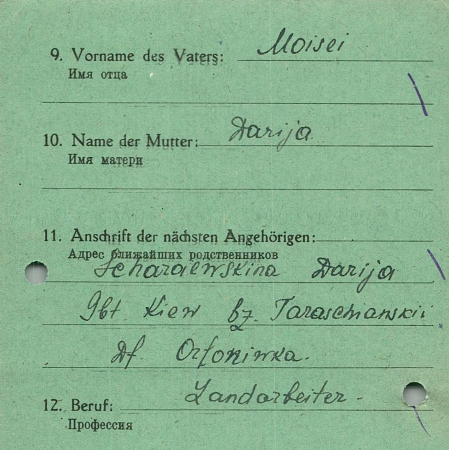 9. Vorname des Vaters: Moisei
Имя отца
10. Name der Mutter: Darija
Имя матери
11. Anschrift der nächsten Angehörigen:
Адрес ближайших родственников
Darija
Gbt Kiew bz. Taraschanskii
Df.
12. Beruf: Landarbeiter.
Профессия